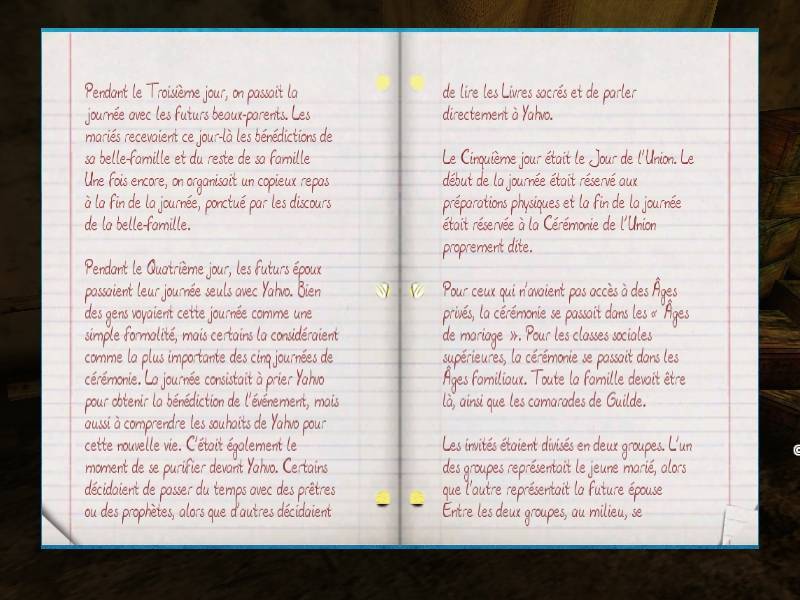 Pendant le Troisième jour, on passait la
journée avec les futurs beaux-parents. Les
mariés recevaient ce jour-là les bénédictions de
sa belle-famille et du reste de sa famille
Une fois encore, on organisait un copieux repas
à la fin de la journée, ponctué par les discours
de la belle-famille.
Pendant le Quatrième jour, les futurs époux
passaient leur journée seuls avec Yahvo. Bien
des gens voyaient cette journée comme une
simple formalité, mais certains la considéraient
comme la plus importante des cinq journées de
cérémonie. La journée consistait à prier Yahvo
pour obtenir la bénédiction de l'événement, mais
aussi à comprendre les souhaits de Yahvo pour
cette nouvelle vie. C'était également le
moment de se purifier devant Yahvo. Certains
décidaient de passer du temps avec des prêtres
ou des prophètes, alors que d'autres décidaient
de lire les Livres sacrés et de parler
directement à Yahvo.
Le Cinquième jour était le Jour de l'Union. Le
début de la journée était réservé aux
préparations physiques et la fin de la journée
était réservée à la Cérémonie de l'Union
proprement dite.
Pour ceux qui n'avaient pas accès à des Âges
privés, la cérémonie se passait dans les « Âges
de mariage ». Pour les classes sociales
supérieures, la cérémonie se passait dans les
Âges familiaux. Toute la famille devait être
là, ainsi que les camarades de Guilde.
Les invités étaient divisés en deux groupes. L'un
des groupes représentait le jeune marié, alors
que l'autre représentait la future épouse
Entre les deux groupes, au milieu, se